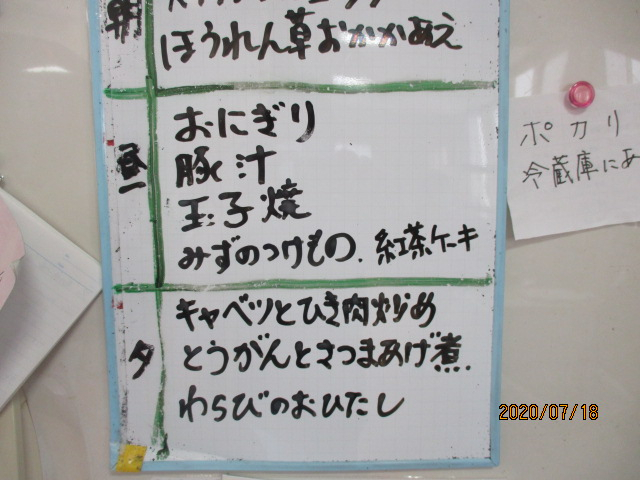 朝
ほうれん草おかかあえ
昼
おにぎり
豚汁
玉子焼
みずのつけもの. 紅茶ケーキ
夕
キャベツとひき肉炒め
とうがんとさつまあげ煮.
わらびのおひたし
ポカリ
冷蔵庫にあ
2020/07/18